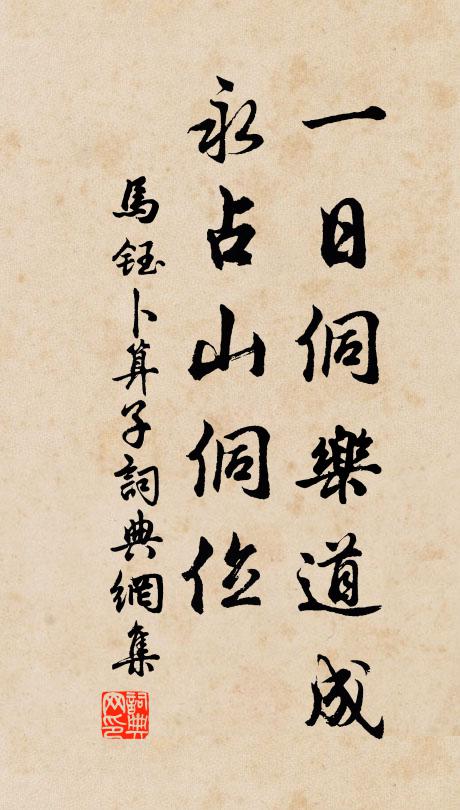 一日侗樂道成
永占山侗位
馬鈺卜算子詞典網集
詞典
网印